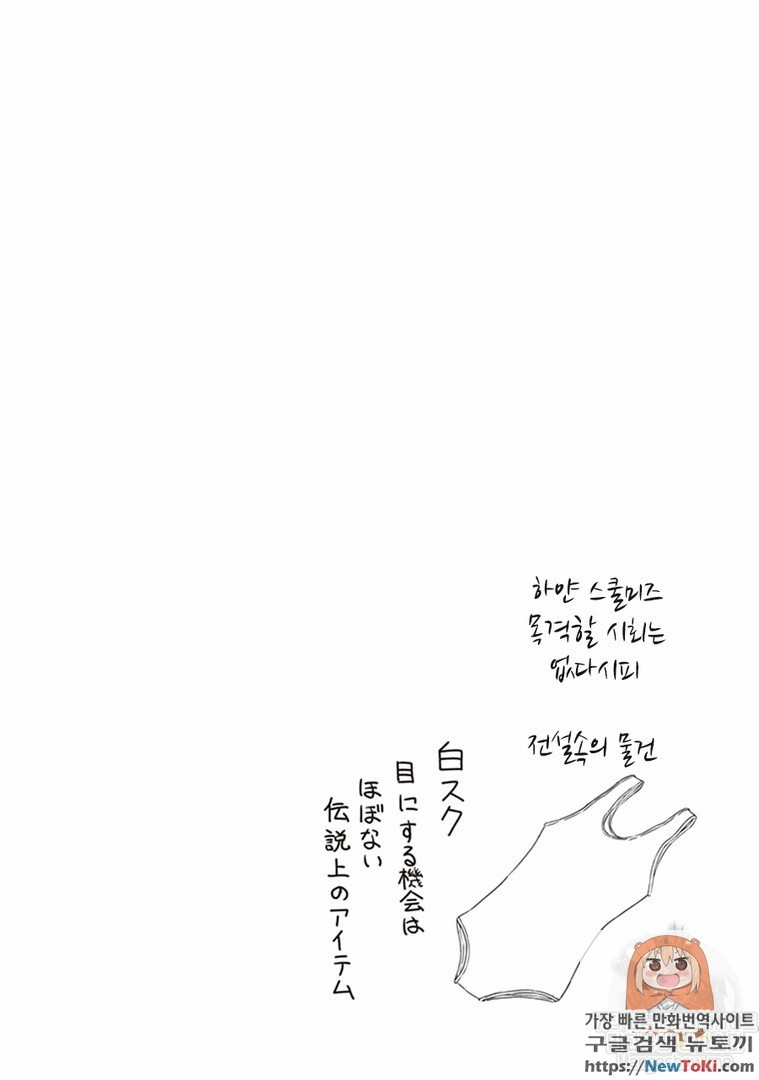 하얀 스쿨미즈
목격할 시회는
없다시피
전설속의 물건
白スク
目にする機会は
ほぼない
伝説上のアイテム
가장 빠른 만화번역사이트
구글검색 뉴토끼
https://NewToki.com